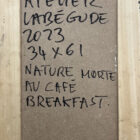 ATELIER
LABÉGUDE
2023
34 X 61
NATURE MORTE
AU CAFÉ
BREAKFAST.